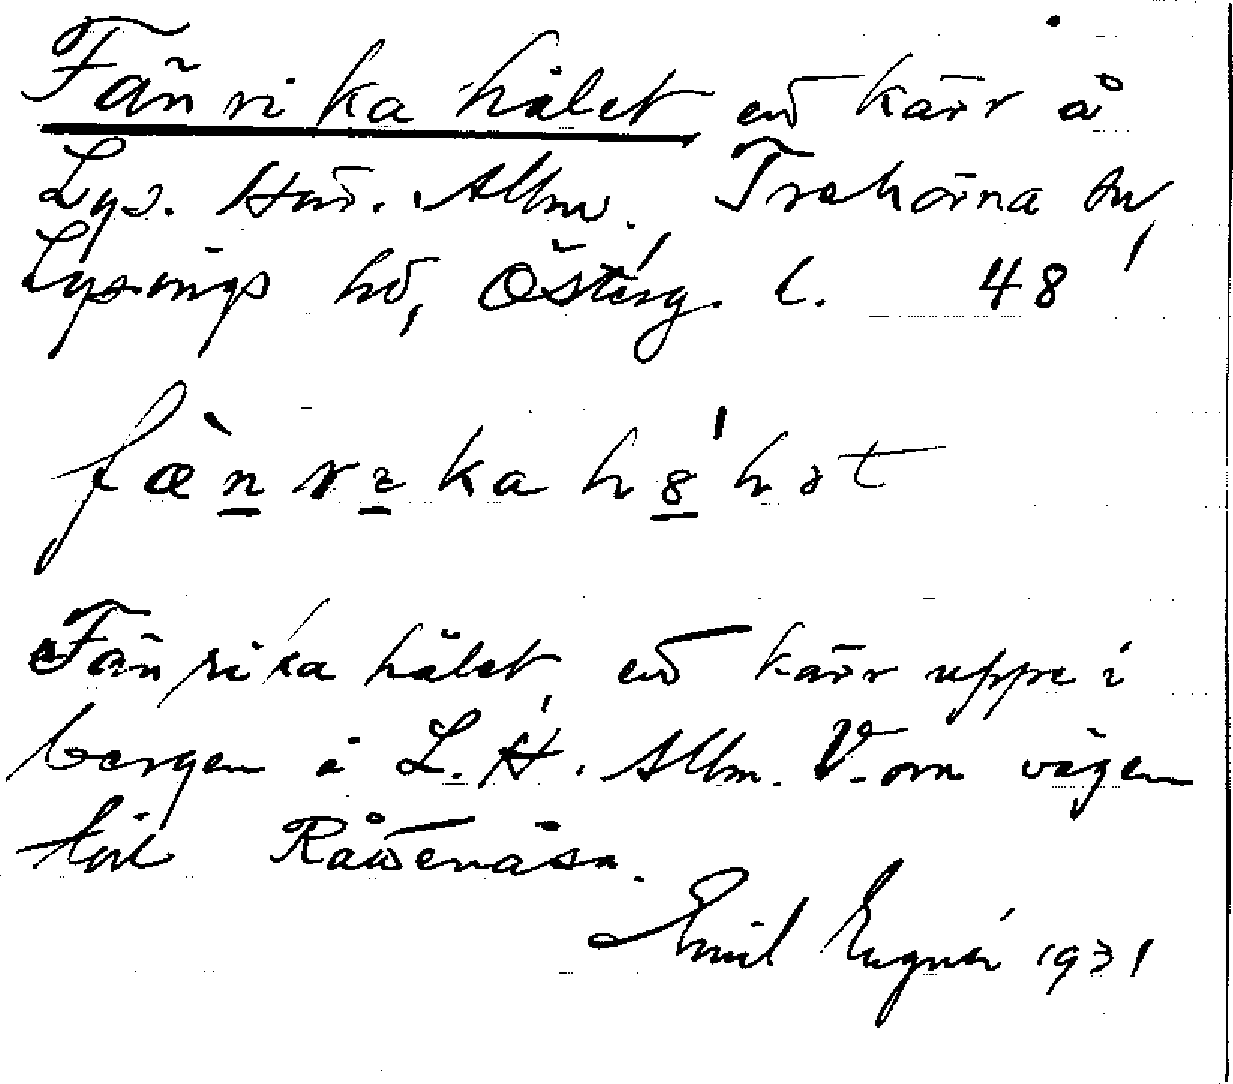 Fänrika hålet ett kärr å
Lys. Här. Allm. Trehörna sn,
Lysings hd, Österg. l. 48
fæ̀nrɩka hȣ́lət
Fänrika hålet, ett kärr uppe i
bergen å L. H. Allm. V. om vägen
till Råttenäsa.
Emil 1931